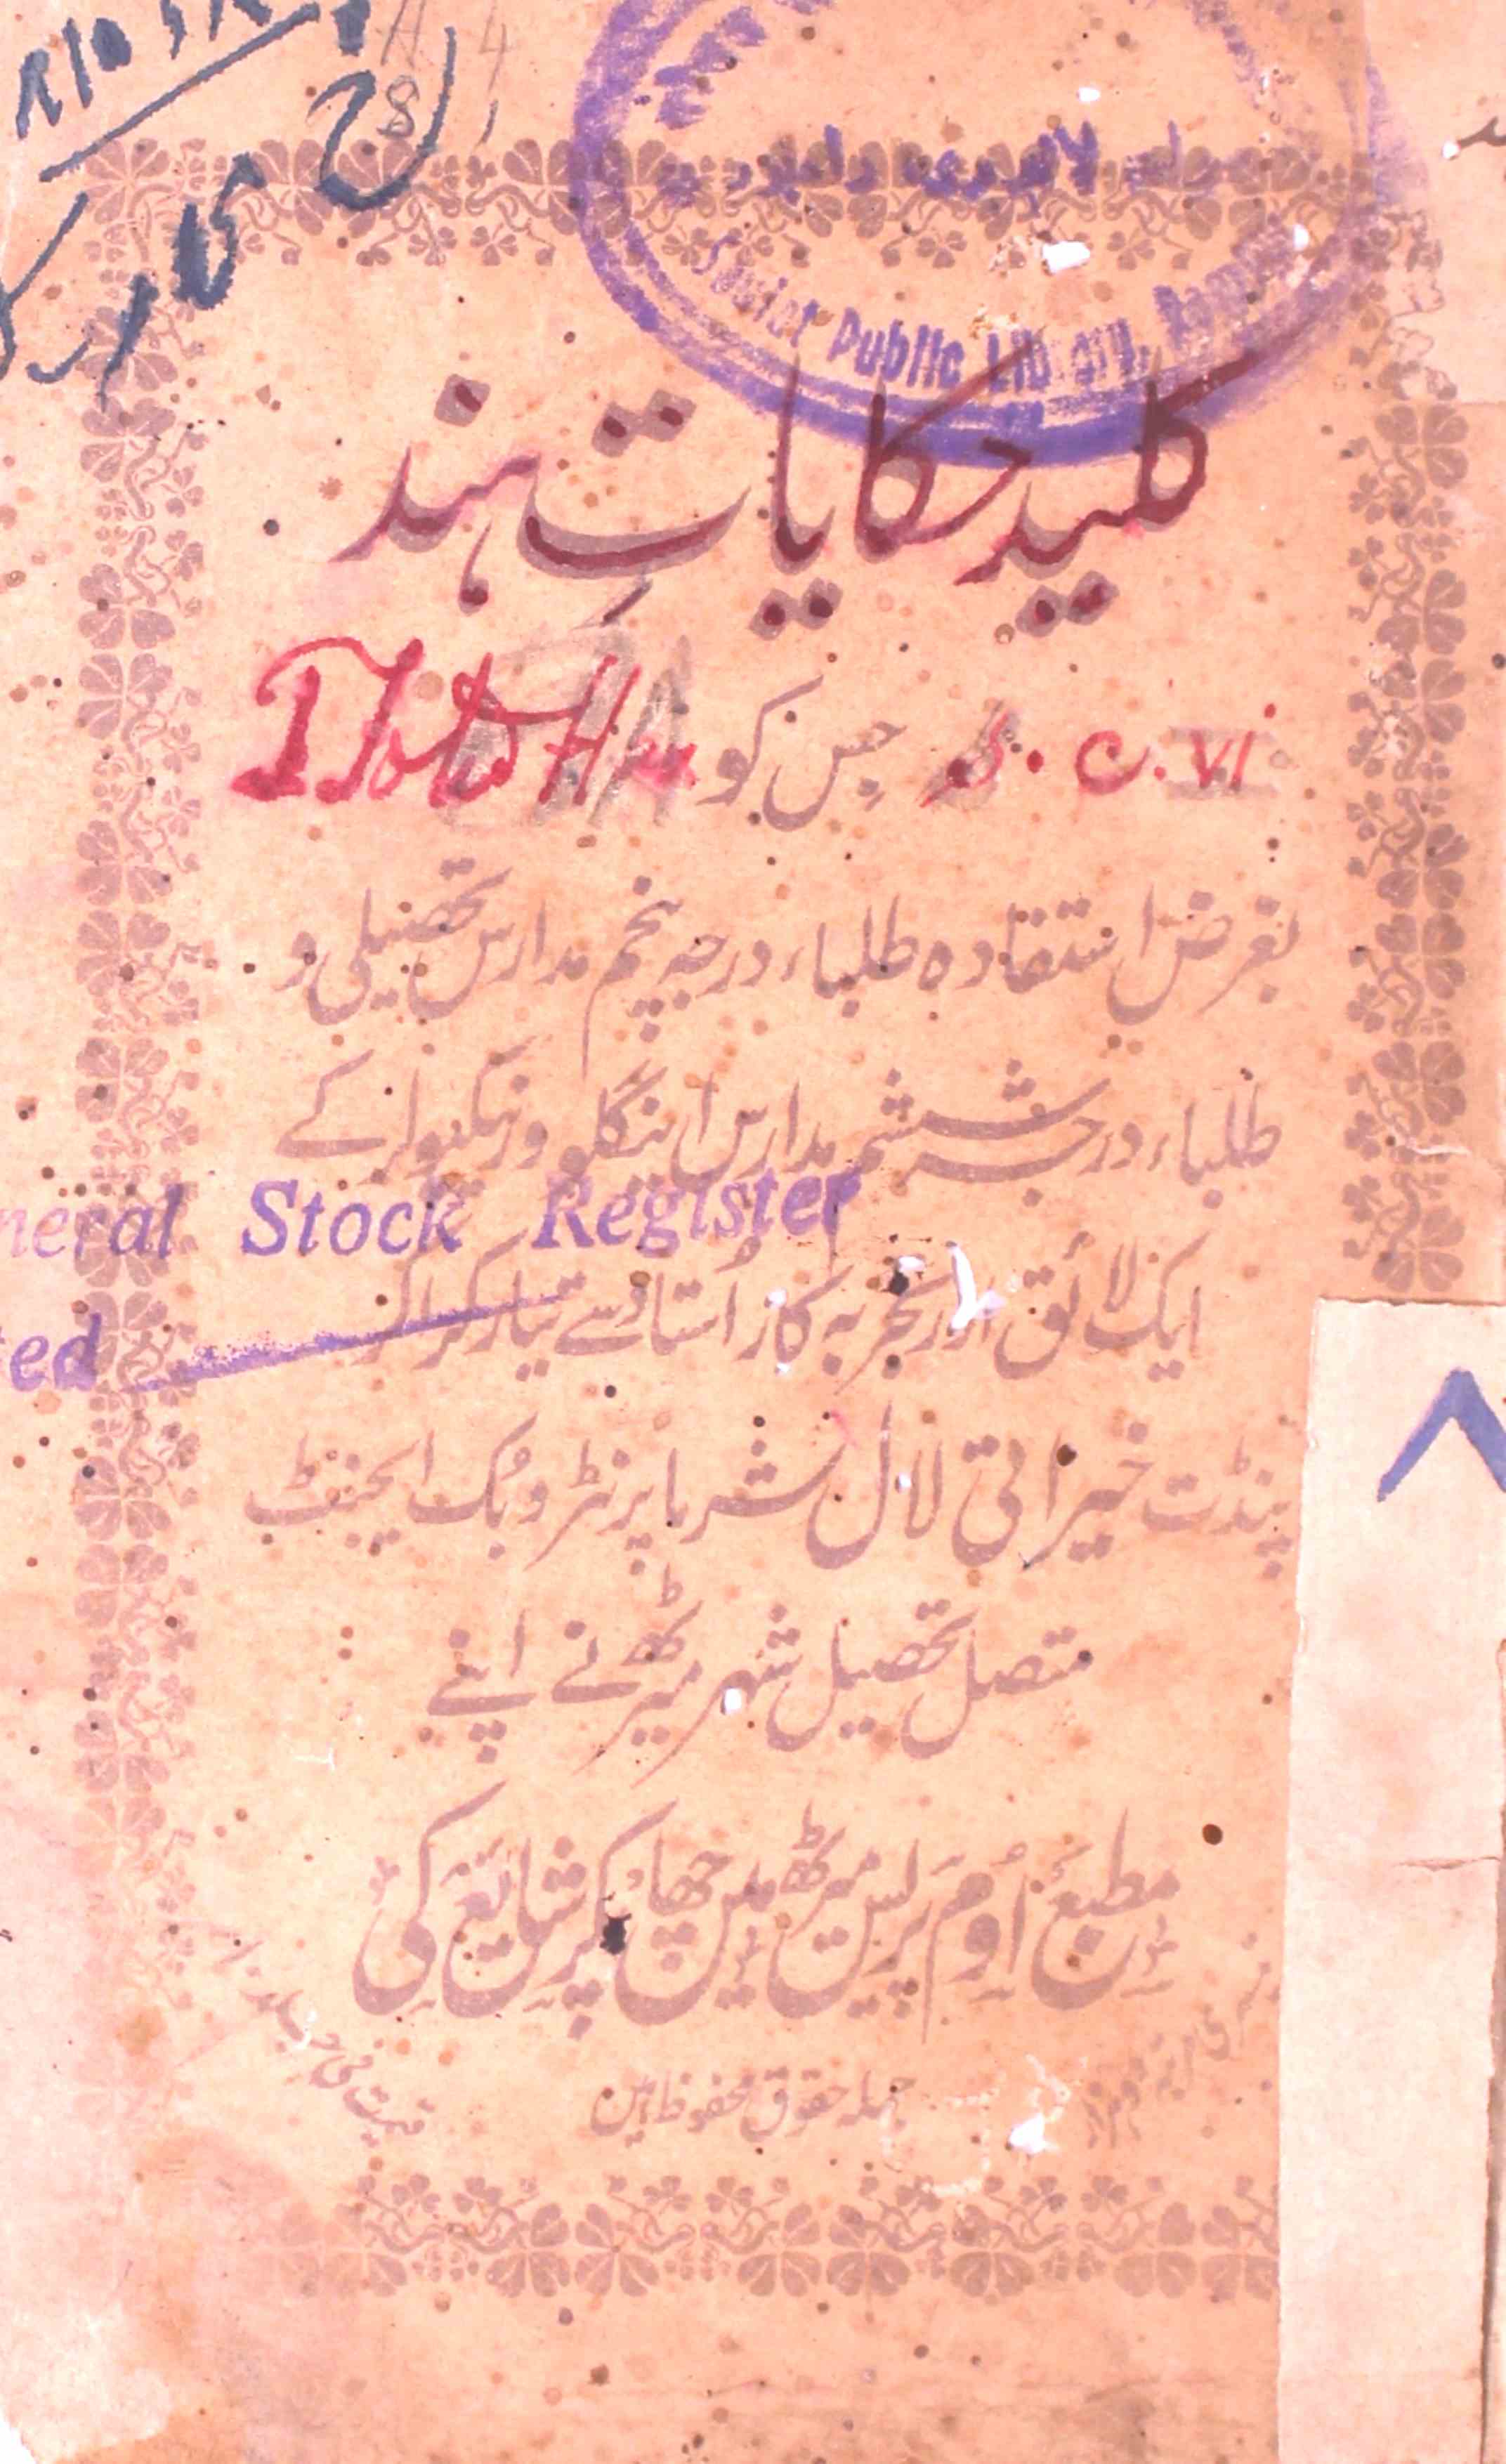 Public Library,
کلید حکایاتِ ہند
جس کو S. C. VI
بغرض استفادہ طلباء درجہ پنجم مدارس تحصیلی و
طلباء درجہ ششم مدارس اینگلو ورنیکیولر کے
General Stock Register
ایک لائق اور تجربہ کار اُستاد سے تیار کرا کر
پنڈت خیراتی لال شرما پرنٹر و بک ایجنٹ
متصل تحصیل شہر میرٹھ نے اپنے
مطبع اوم پریس میرٹھ میں چھاپکر شایع کی
جملہ حقوق محفوظ ہیں
قیمت فی جلد